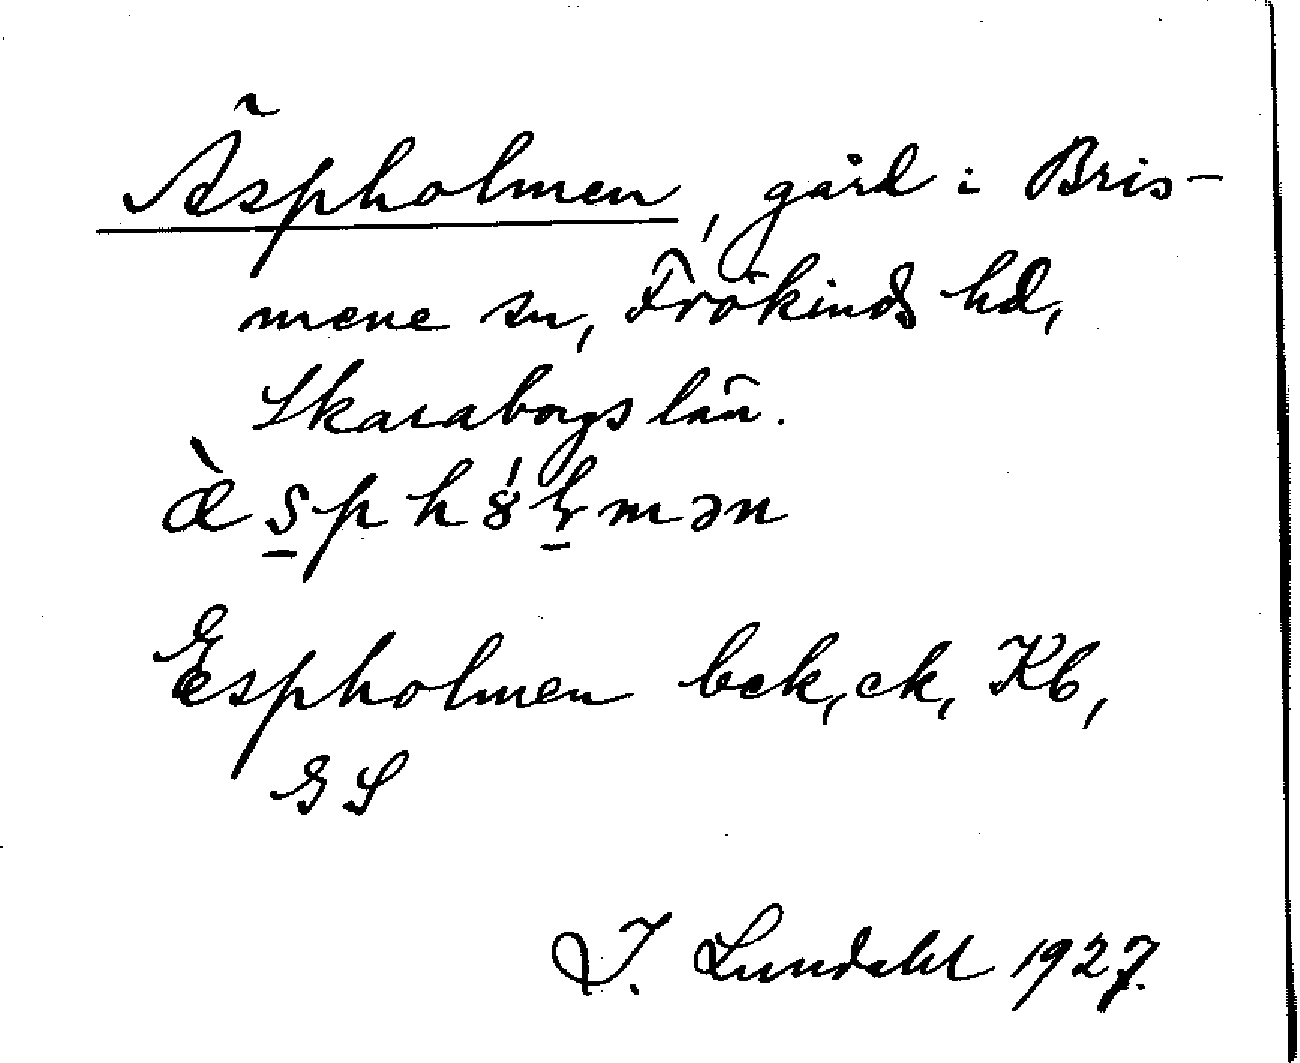 Äspholmen, gård i Bris-
mene sn, Frökinds hd,
Skaraborgs län.
Espholmen bck, ck, Kb,
GS
I. Lundahl 1927.